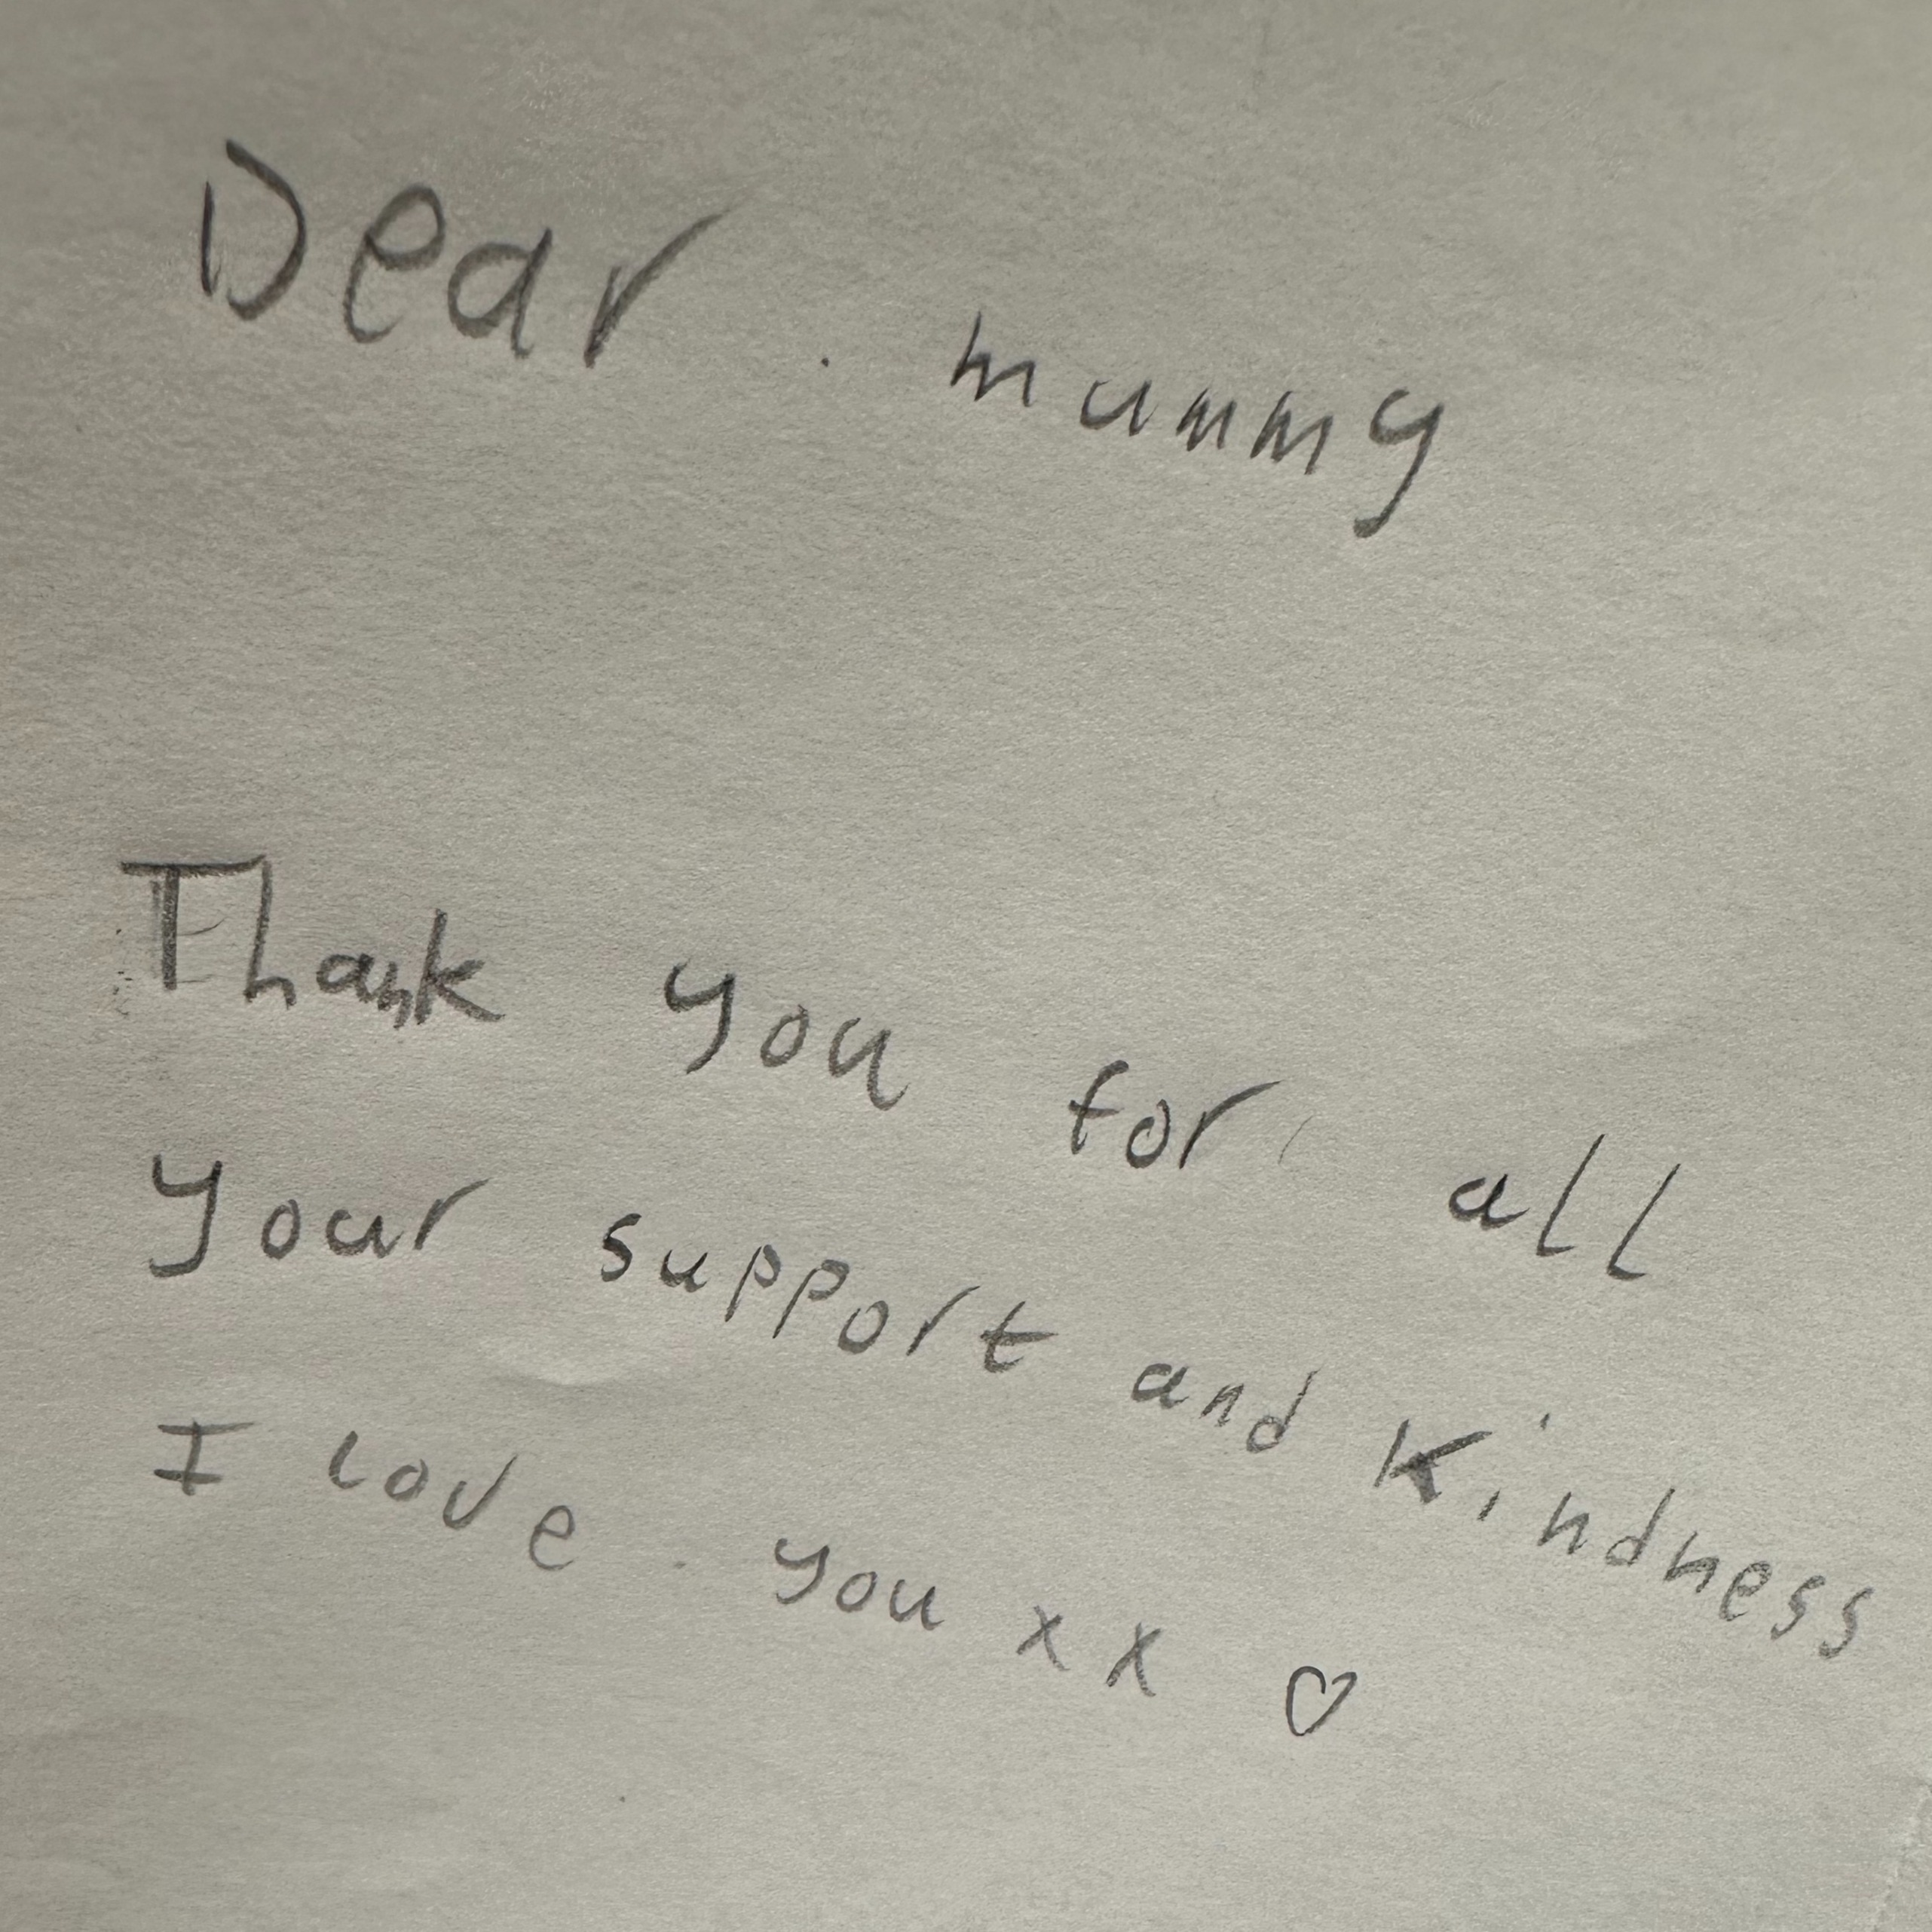 Dear mummy
Thank you for all
your support and kindness
I love you xx ♡